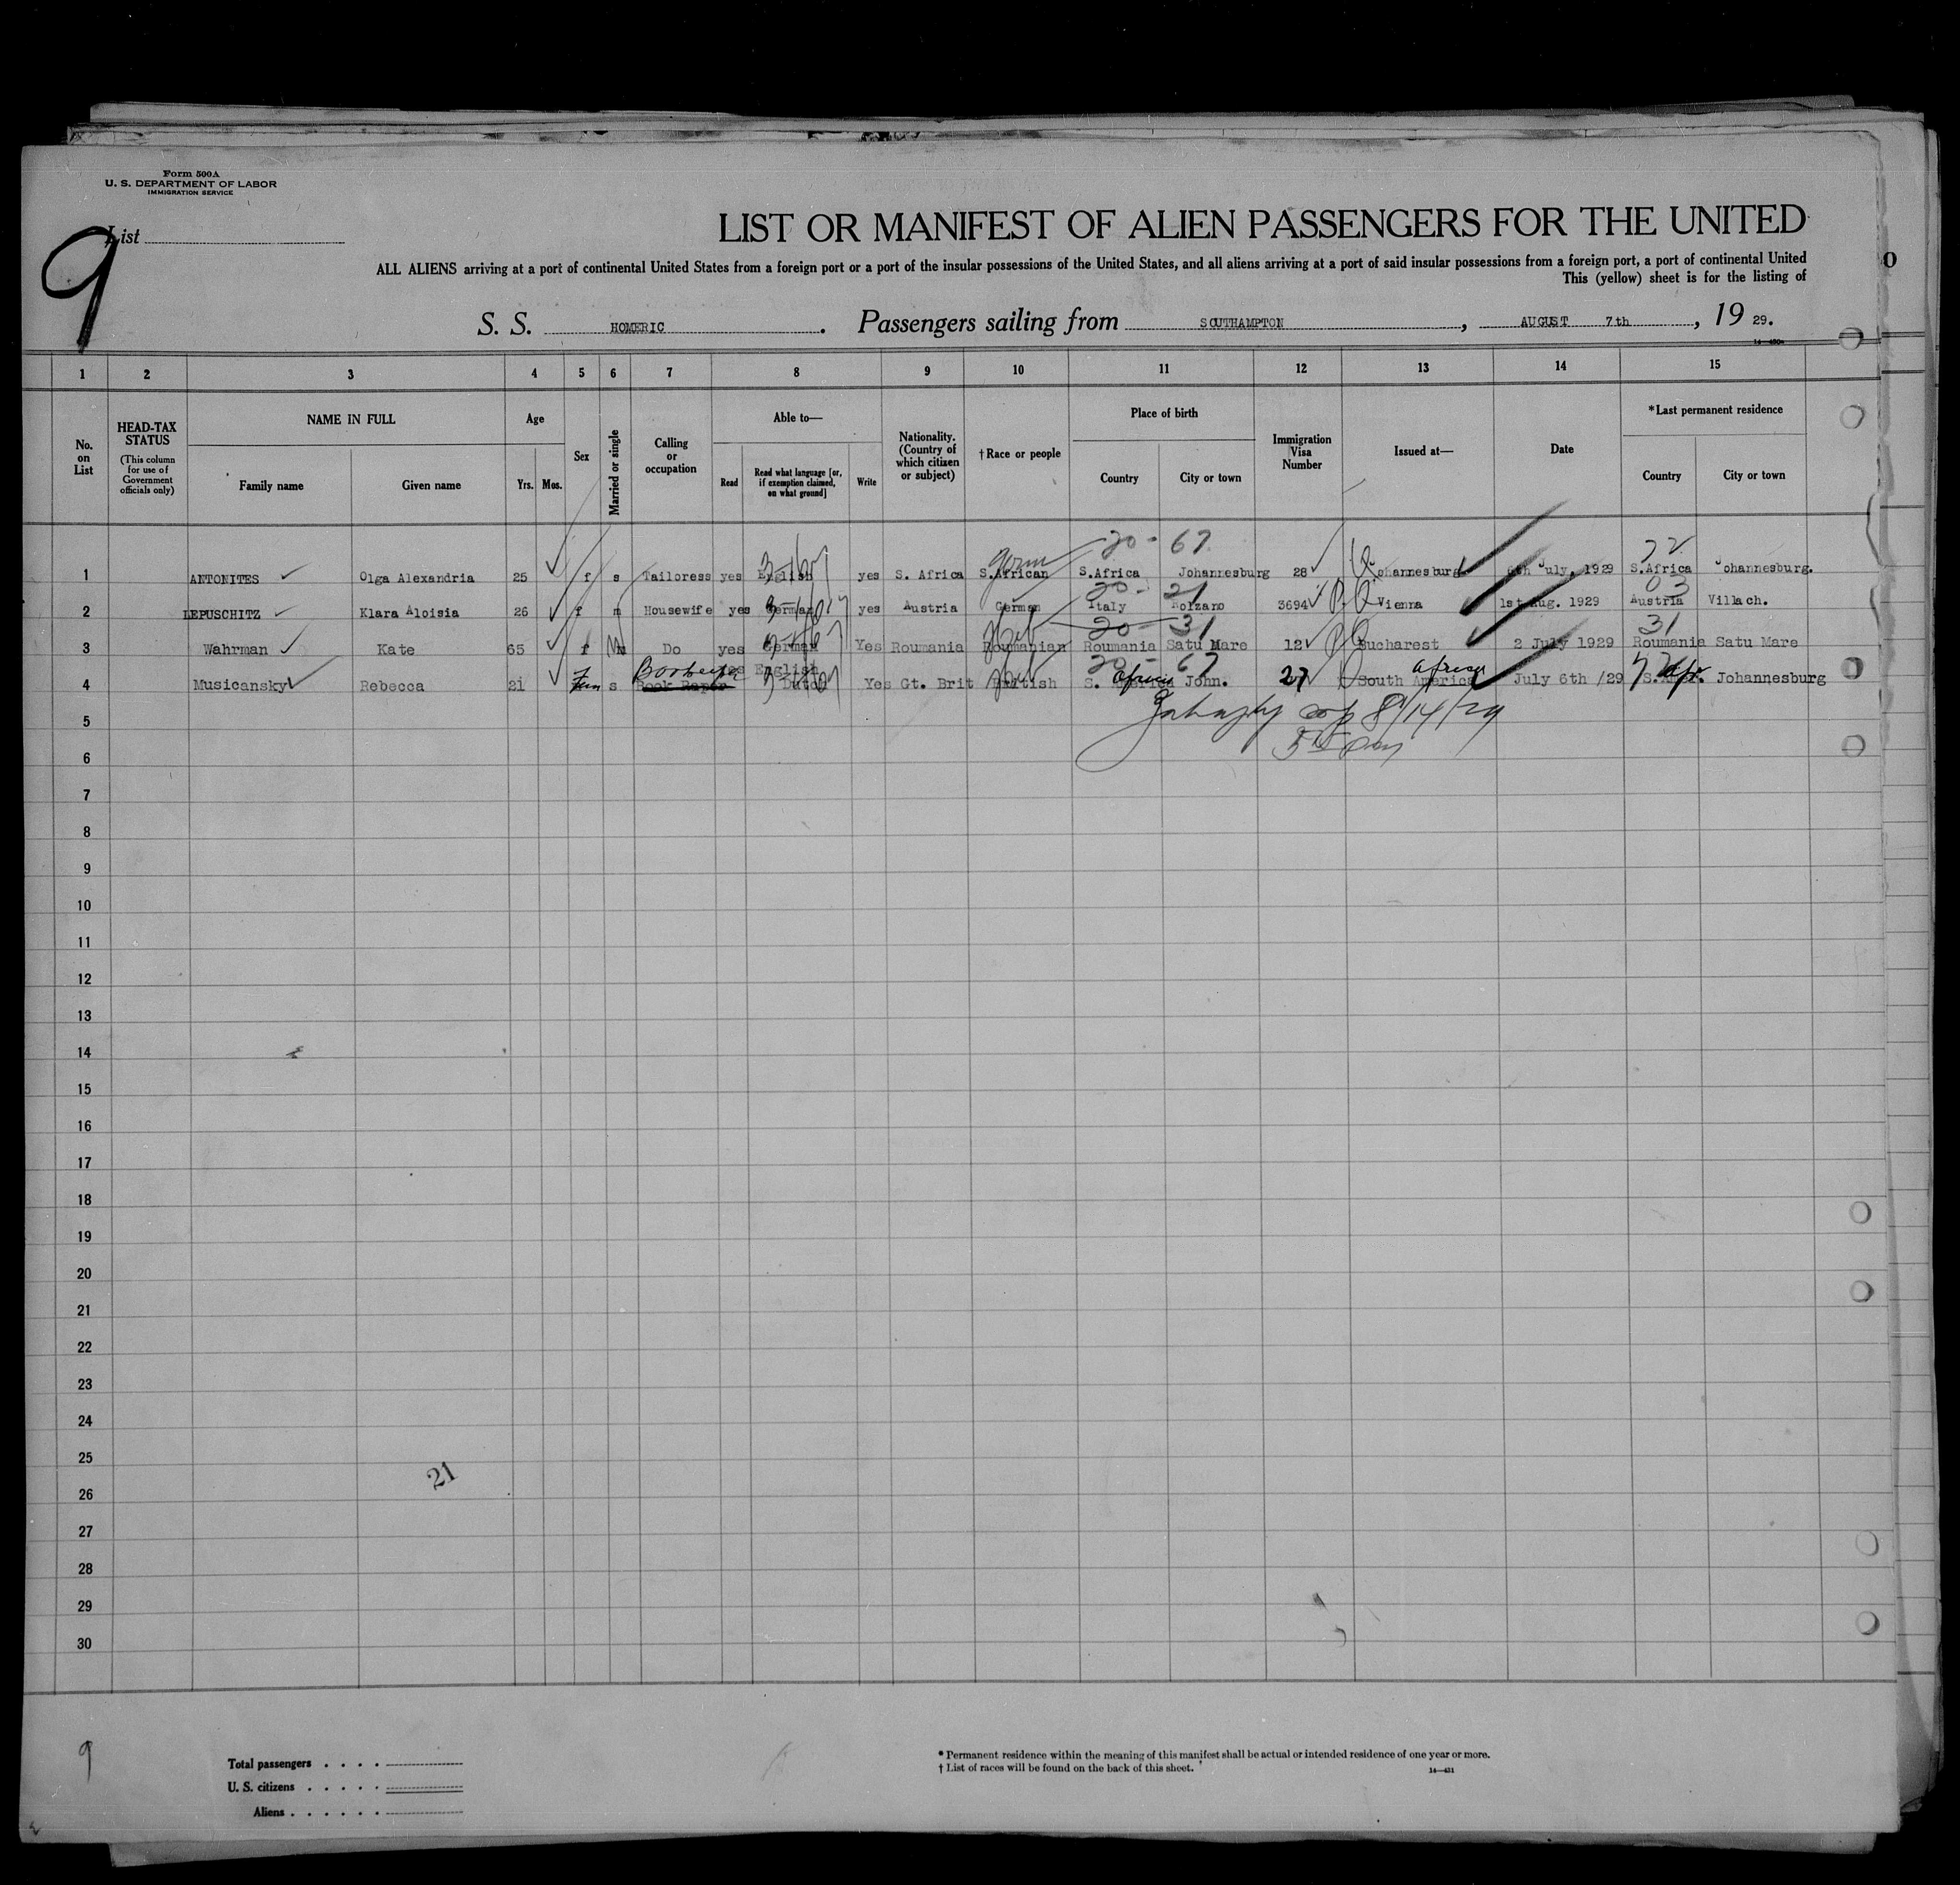 Form 500A
U. S. DEPARTMENT OF LABOR
IMMIGRATION SERVICE
List
9
LIST OR MANIFEST OF ALIEN PASSENGERS FOR THE UNITED
ALL ALIENS arriving at a port of continental United States from a foreign port or a port of the insular possessions of the United States, and all aliens arriving at a port of said insular possessions from a foreign port, a port of continental United
This (yellow) sheet is for the listing of
S. S. HOMERIC. Passengers sailing from SOUTHAMPTON, AUGUST 7th, 19 29.
1 2 3 4 5 6 7 8 9 10 11 12 13 14 15
No. on List
HEAD-TAX STATUS
(This column for use of Government officials only)
NAME IN FULL
Family name Given name
Age
Yrs. Mos.
Sex
Married or single
Calling or occupation
Able to—
Read Read what language [or, if exemption claimed, on what ground] Write
Nationality. (Country of which citizen or subject)
† Race or people
Place of birth
Country City or town
Immigration Visa Number
Issued at—
Date
*Last permanent residence
Country City or town
20 - 67 72
1 ANTONITES Olga Alexandria 25 f s Tailoress yes English yes S. Africa S.African Germ S.Africa Johannesburg 28 Johannesburg 6th July, 1929 S.Africa Johannesburg.
20 - 21 03
2 LEPUSCHITZ Klara Aloisia 26 f m Housewife yes German yes Austria German Italy Bolzano 3694 Vienna 1st Aug. 1929 Austria Villach.
20 - 31 31
3 Wahrman Kate 65 f Do yes German Yes Roumania Roumanian Heb Roumania Satu Mare 12 Bucharest 2 July 1929 Roumania Satu Mare
20 - 67
4 Musicansky Rebecca 21 F s Book Keeper yes English Dutch Yes Gt. Brit British Heb S. Africa John. 27 South America Africa July 6th /29 S. Afr. Johannesburg
5
8/14/29
6
7
8
9
10
11
12
13
14
15
16
17
18
19
20
21
22
23
24
25
21
26
27
28
29
30
9
Total passengers . . . .
U. S. citizens . . . . .
Aliens . . . . . .
* Permanent residence within the meaning of this manifest shall be actual or intended residence of one year or more.
† List of races will be found on the back of this sheet.
14—431